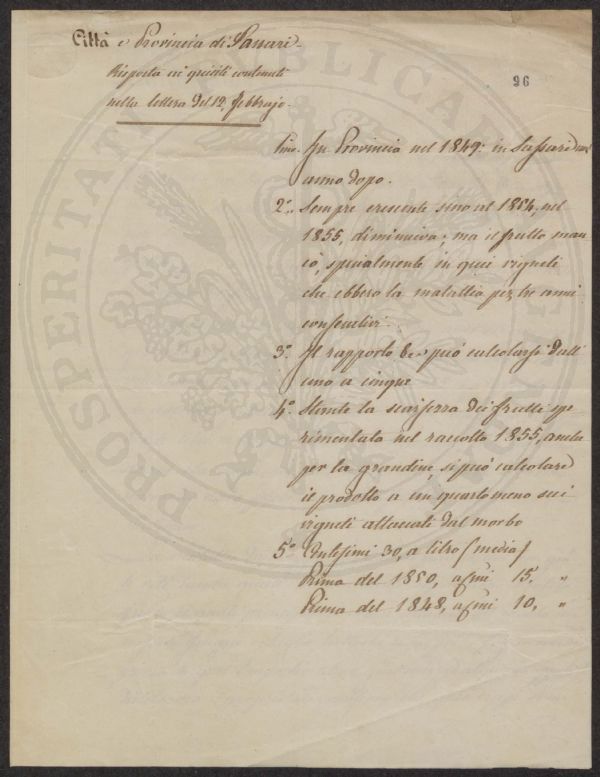 Città e Provincia di Sassari
Risposta ai quesiti contenuti
nella lettera del 12 Febbrajo.
96
Pmo. In Provincia nel 1849: in Sassari un
anno dopo.
2°.. Sempre crescente sino al 1854, nel
1855, diminuiva; ma il frutto man
cò, specialmente in quei vigneti
che ebbero la malattia per tre anni
consecutivi.
3° Il rapporto può calcolarsi dall'
uno a cinque
4° Stante la scarsezza dei frutti spe
rimentata nel raccolto 1855, anche
per la grandine, si può calcolare
il prodotto a un quarto meno sui
vigneti attaccati dal morbo
5° Centesimi 30, a litro (media)
Prima del 1850, a 15, "
Prima del 1848, a 10, "
PROSPERITATI PUBLICAE